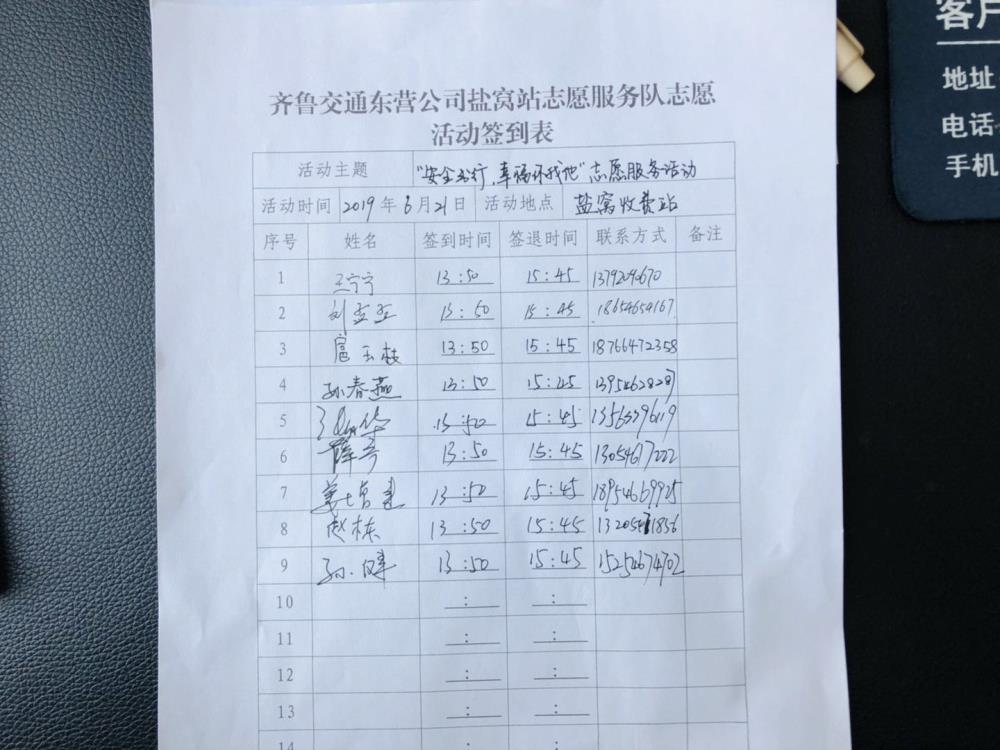 齐鲁交通东营公司盐窝站志愿服务队志愿
活动签到表
活动主题 "安全出行,幸福你我他"志愿服务活动
活动时间 2019年6月21日 活动地点 盐窝收费站
序号 姓名 签到时间 签退时间 联系方式 备注
1 王宁宁 13:50 15:45
2 刘孟孟 13:50 15:45 18654654167
3 扈玉枝 13:50 15:45 18766472358
4 孙春燕 13:50 15:45 13954628287
5 13:50 15:45 13563396119
6 薛奇 13:50 15:45 13054617222
7 姜增建 13:50 15:45 18954669925
8 赵栋 13:50 15:45
9 孙健 13:50 15:45 15254674702
10 : :
11 : :
12 : :
13 : :
14
客户
地址
电话
手机